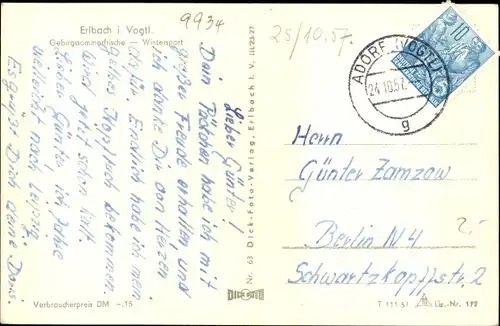 Erlbach i Vogtl.
Gebirgssommerfrische — Wintersport
9934
25/10.57.
Lieber Günter!
Dein Päckchen habe ich mit
großer Freude erhalten, und
ich danke Dir von Herzen
dafür. Endlich habe ich mein
gelbes Kopftuch bekommen.
Wird jetzt schon kalt.
Lieber Günter, ich fahre
vielleicht nach Leipzig.
Es grüßt Dich deine Doris.
Verbraucherpreis DM -.15
Nr. 63 Dick-Foto-Verlag, Erlbach i. V. III/23/27
DICK FOTO
10
ADORF (VOGTL)
24.10.57.
g
Herrn
Günter Zamzow
Berlin N4
Schwartzkopffstr. 2
2,-
T 111-57
Liz.-Nr. 177